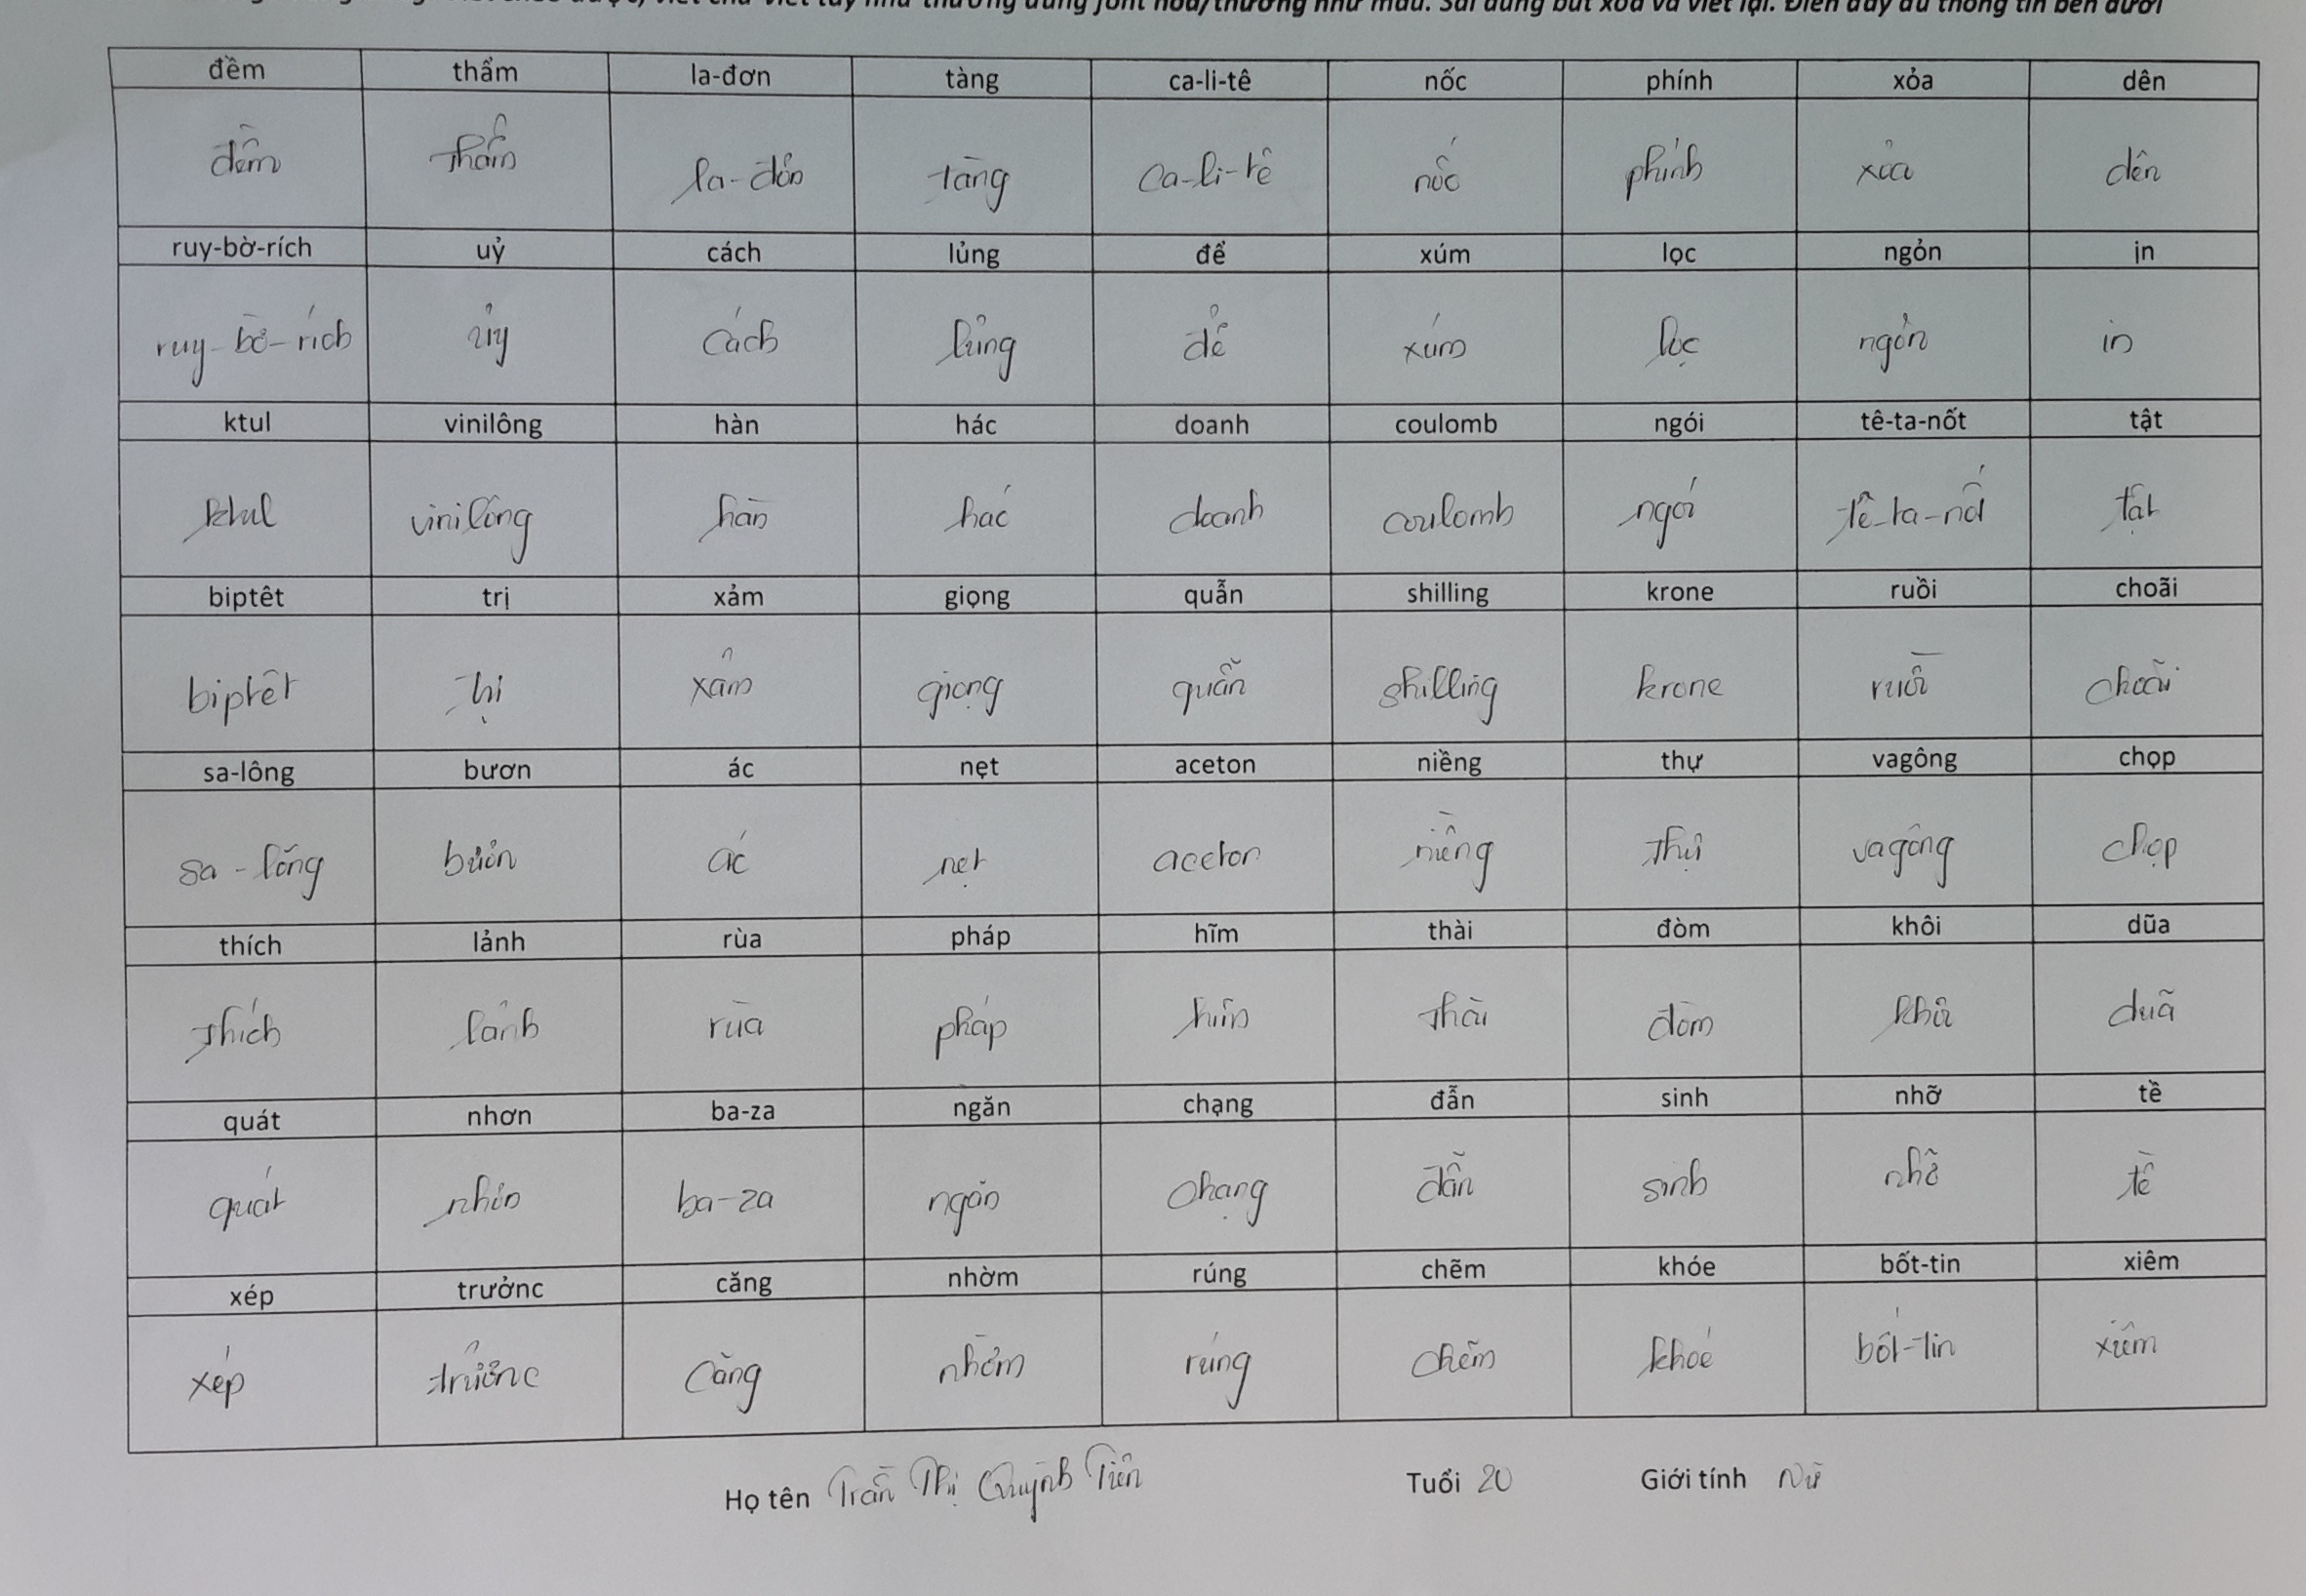 đềm thẩm la-đơn tàng ca-li-tê nốc phính xỏa dên
đềm thẩm la-đơn tàng ca-li-tê nốc phính xỏa dên
ruy-bờ-rích uỷ cách lủng để xúm lọc ngỏn ịn
ruy-bờ-rích ủy cách lủng để xúm lọc ngỏn in
ktul vinilông hàn hác doanh coulomb ngói tê-ta-nốt tật
ktul vinilông hàn hác doanh coulomb ngói tê-ta-nốt tật
biptêt trị xảm giọng quẫn shilling krone ruồi choãi
biptêt trị xảm giọng quẫn shilling krone ruồi choãi
sa-lông bươn ác nẹt aceton niềng thự vagông chọp
sa-lông bươn ác nẹt aceton niềng thự vagông chọp
thích lảnh rùa pháp hĩm thài đòm khôi dũa
thích lảnh rùa pháp hĩm thài đòm khôi duã
quát nhơn ba-za ngăn chạng đẫn sinh nhỡ tề
quát nhơn ba-za ngăn chạng đẫn sinh nhỡ tề
xép trưởnc căng nhờm rúng chẽm khóe bốt-tin xiêm
xép trưởnc căng nhờm rúng chẽm khoé bốt-tin xiêm
Họ tên Trần Thị Quỳnh Tiên Tuổi 20 Giới tính Nữ